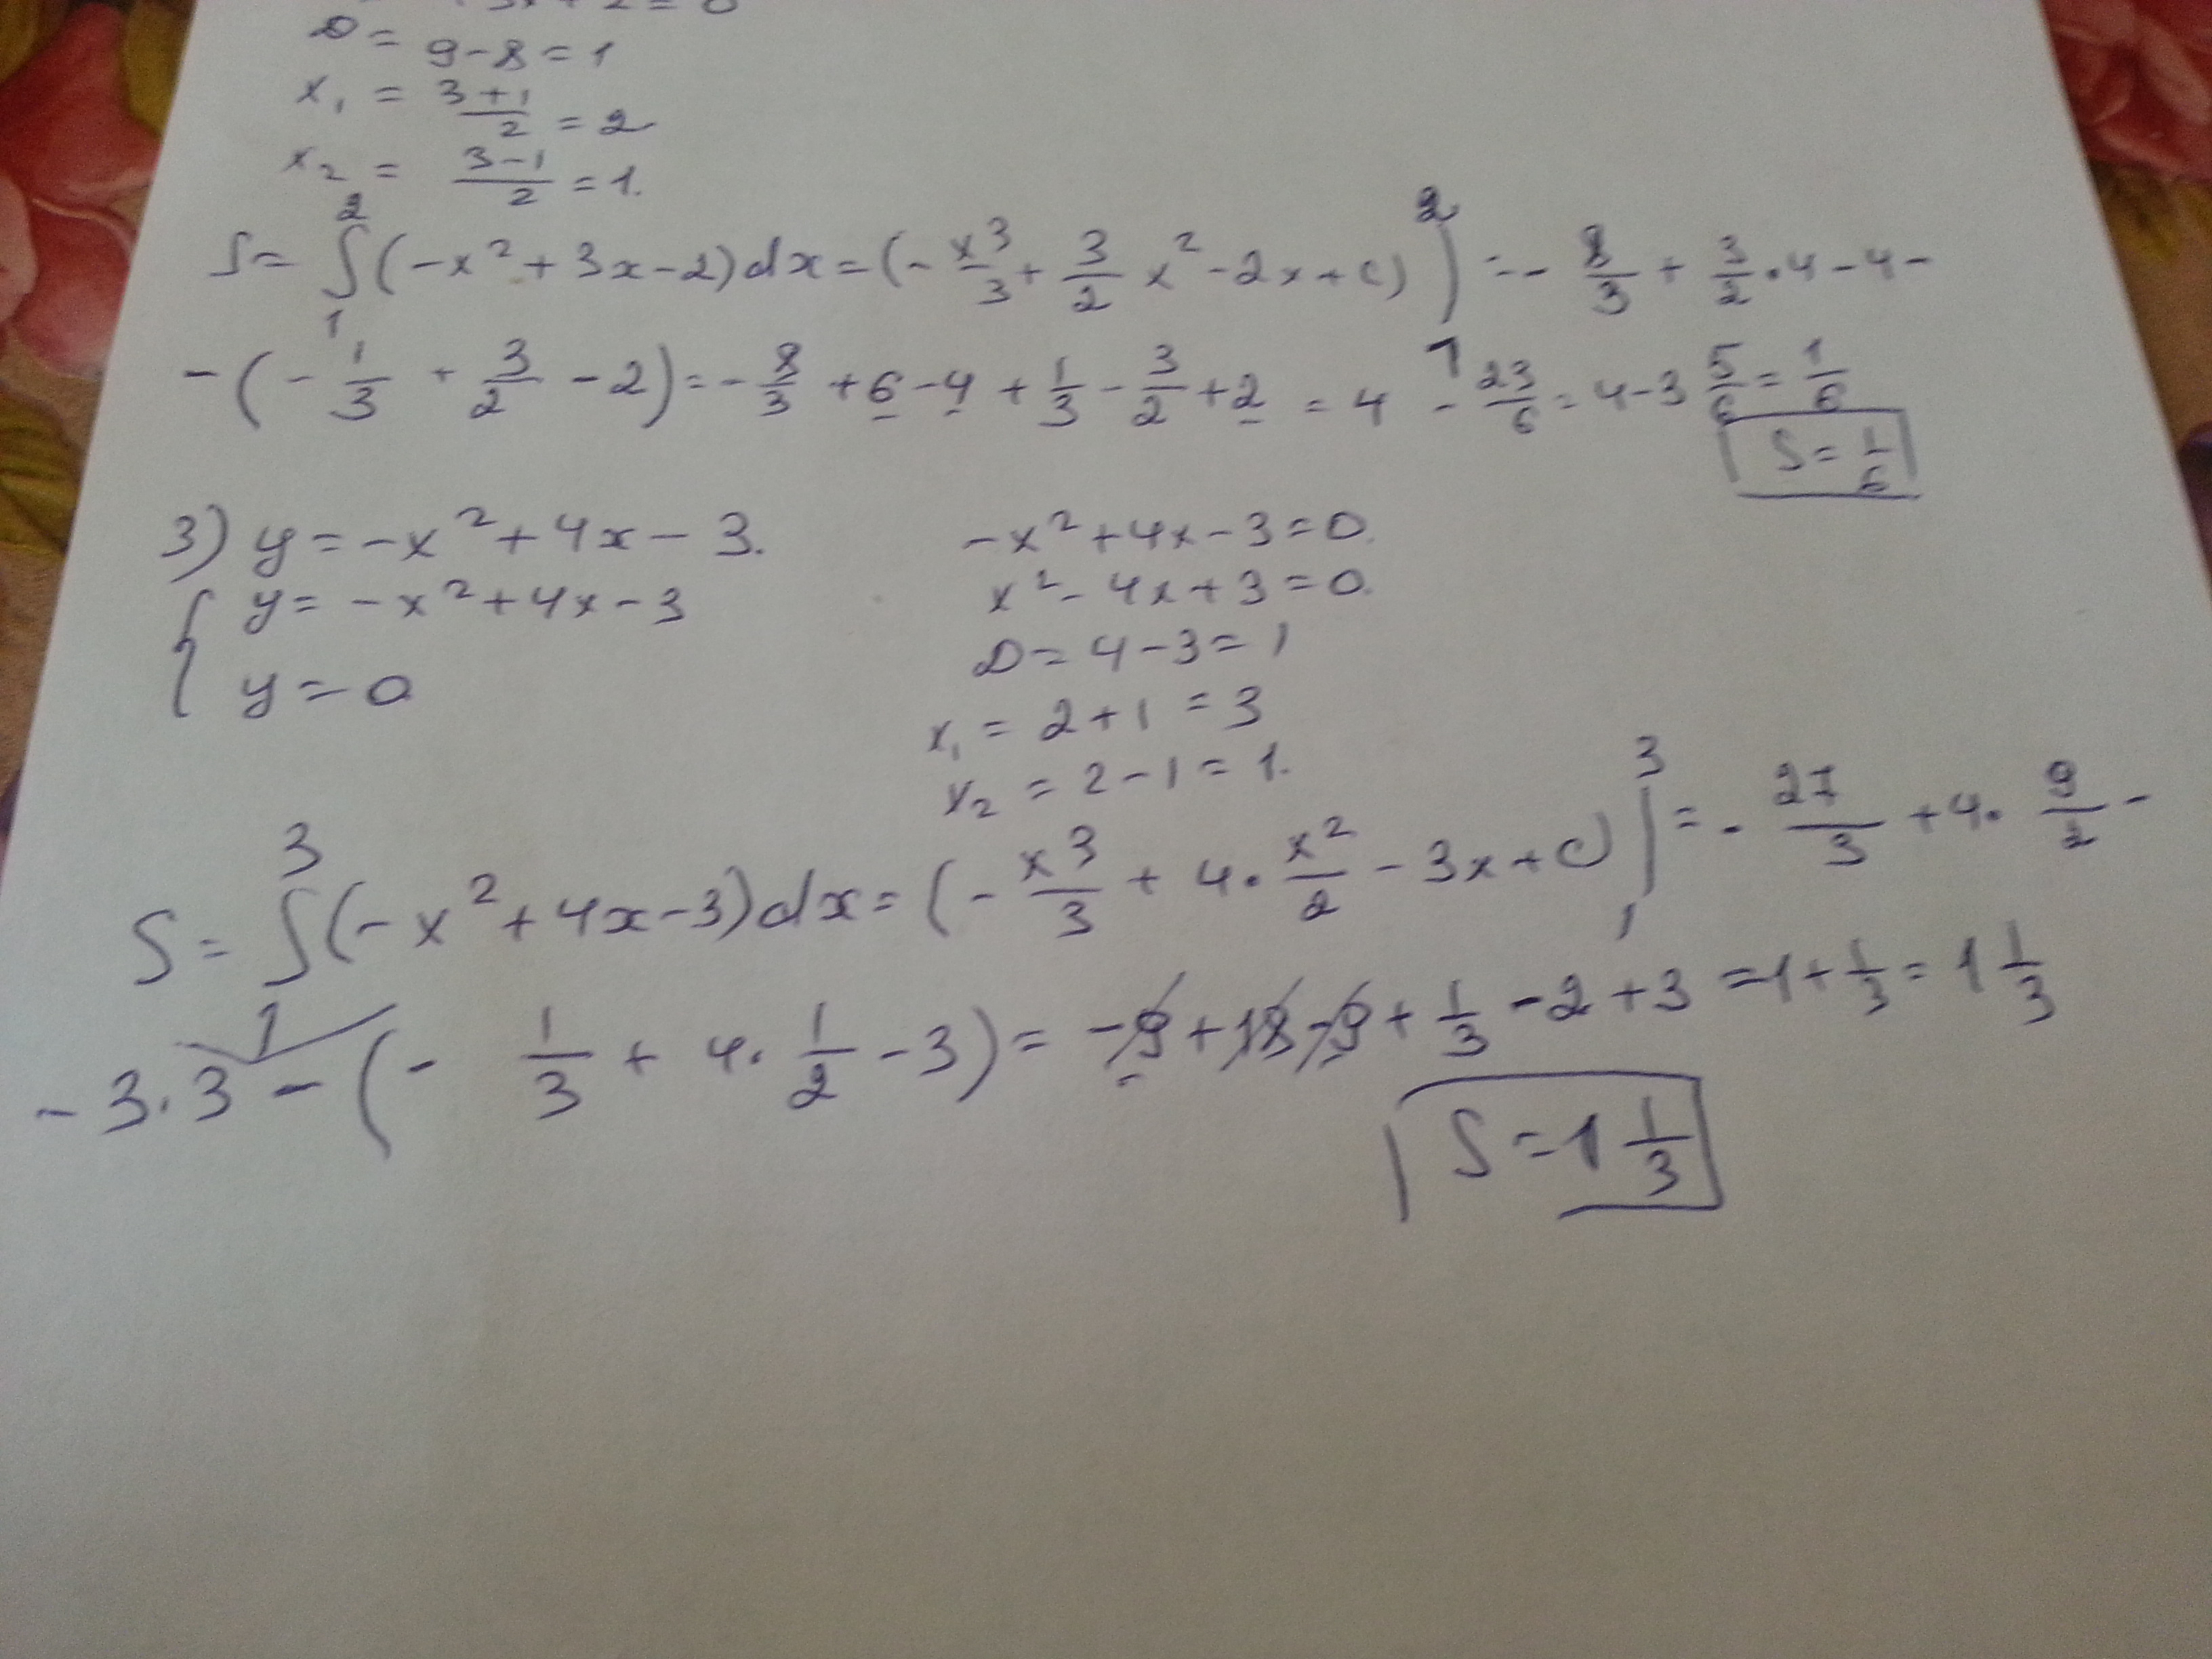 3x + 2 = 0
D = 9 - 8 = 1
x₁ = (3+1)/2 = 2
x₂ = (3-1)/2 = 1.
S = ∫₁² (-x² + 3x - 2)dx = (-x³/3 + 3/2 x² - 2x + C) |₁² = - 8/3 + 3/2 · 4 - 4 -
- (- 1/3 + 3/2 - 2) = - 8/3 + 6 - 4 + 1/3 - 3/2 + 2 = 4 - 23/6 = 4 - 3 5/6 = 1/6
S = 1/6
3) y = -x² + 4x - 3. -x² + 4x - 3 = 0.
{ y = -x² + 4x - 3 x² - 4x + 3 = 0.
y = 0 D = 4 - 3 = 1
x₁ = 2 + 1 = 3
x₂ = 2 - 1 = 1.
S = ∫₁³ (-x² + 4x - 3)dx = (- x³/3 + 4 · x²/2 - 3x + C) |₁³ = - 27/3 + 4 · 9/2 -
- 3 · 3 - (- 1/3 + 4 · 1/2 - 3) = -9 + 18 - 9 + 1/3 - 2 + 3 = 1 + 1/3 = 1 1/3
S = 1 1/3